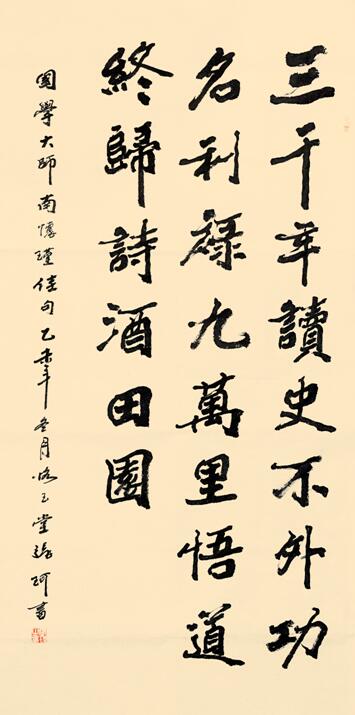 三千年讀史不外功
名利祿九萬里悟道
終歸詩酒田園
國學大師南懷瑾佳句乙未年冬月堂珂書